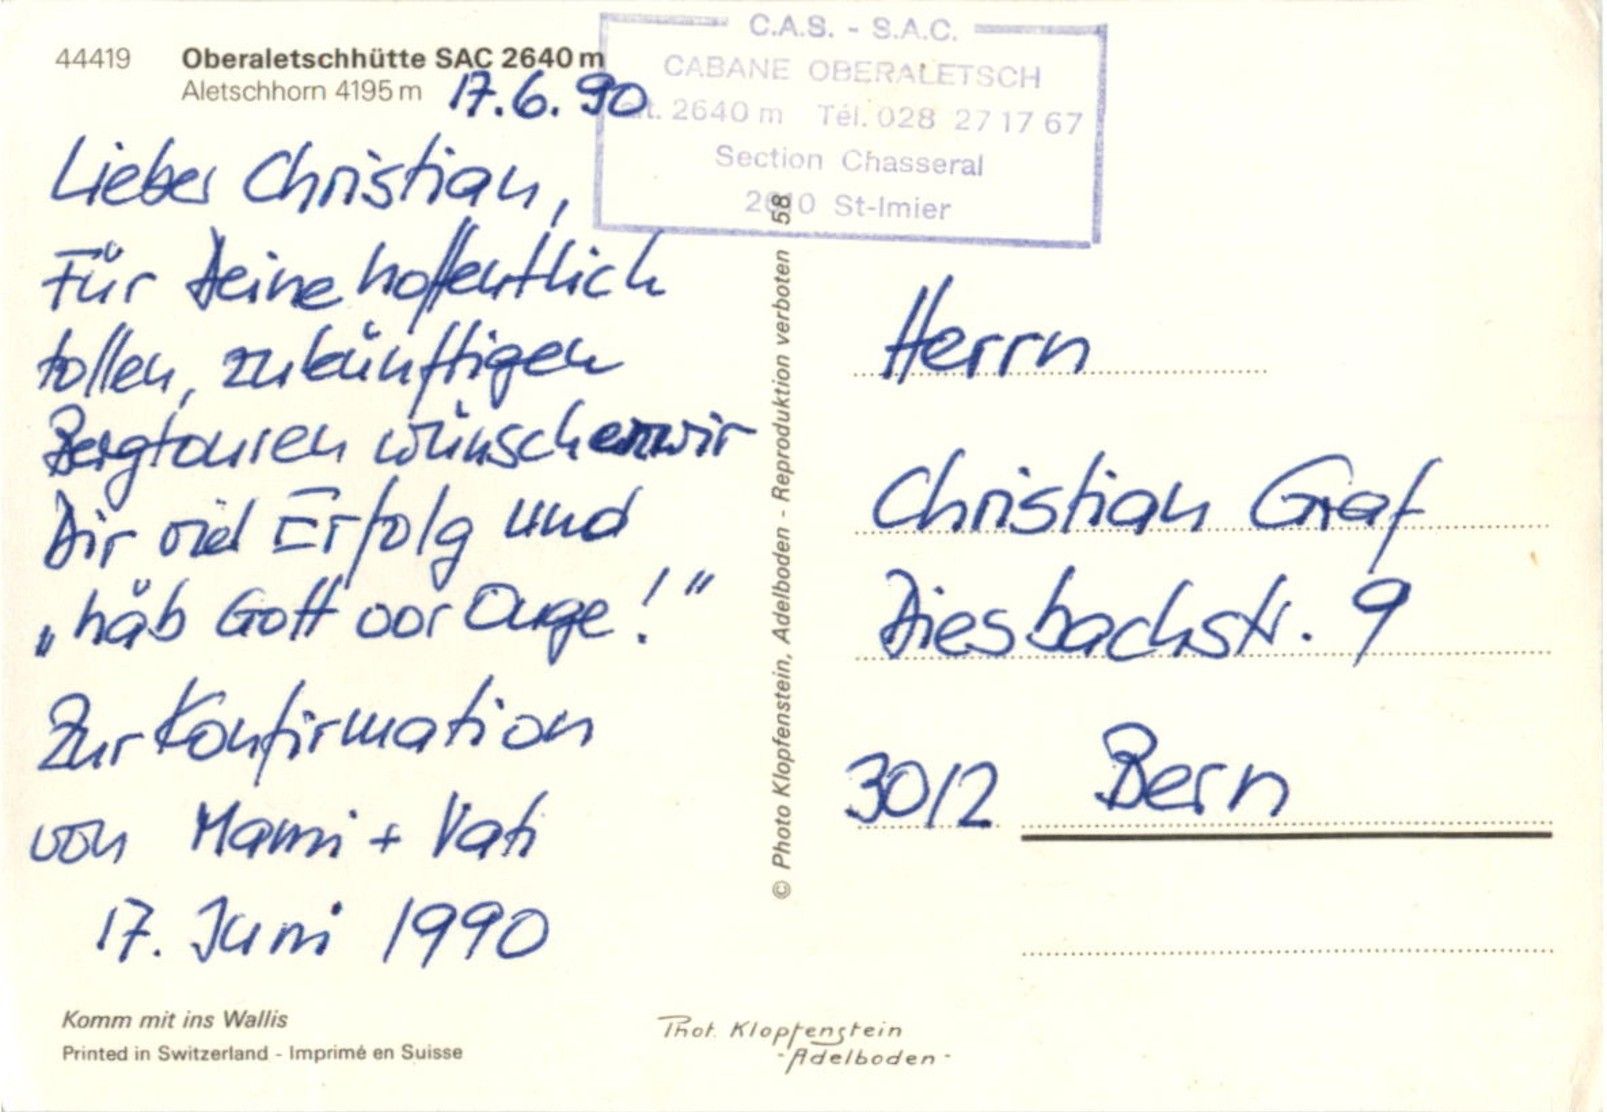 44419 Oberaletschhütte SAC 2640 m
Aletschhorn 4195 m
17.6.90
C.A.S. - S.A.C.
CABANE OBERALETSCH
alt. 2640 m Tél. 028 27 17 67
Section Chasseral
2610 St-Imier
Lieber Christian,
Für Deine hoffentlich
tollen, zukünftigen
Bergtouren wünschen wir
Dir viel Erfolg und
„häb Gott vor Ouge!"
Zur Konfirmation
von Mami + Vati
17. Juni 1990
Komm mit ins Wallis
Printed in Switzerland - Imprimé en Suisse
© Photo Klopfenstein, Adelboden - Reproduktion verboten 58
Phot. Klopfenstein
- Adelboden -
Herrn
Christian Graf
Diesbachstr. 9
3012 Bern